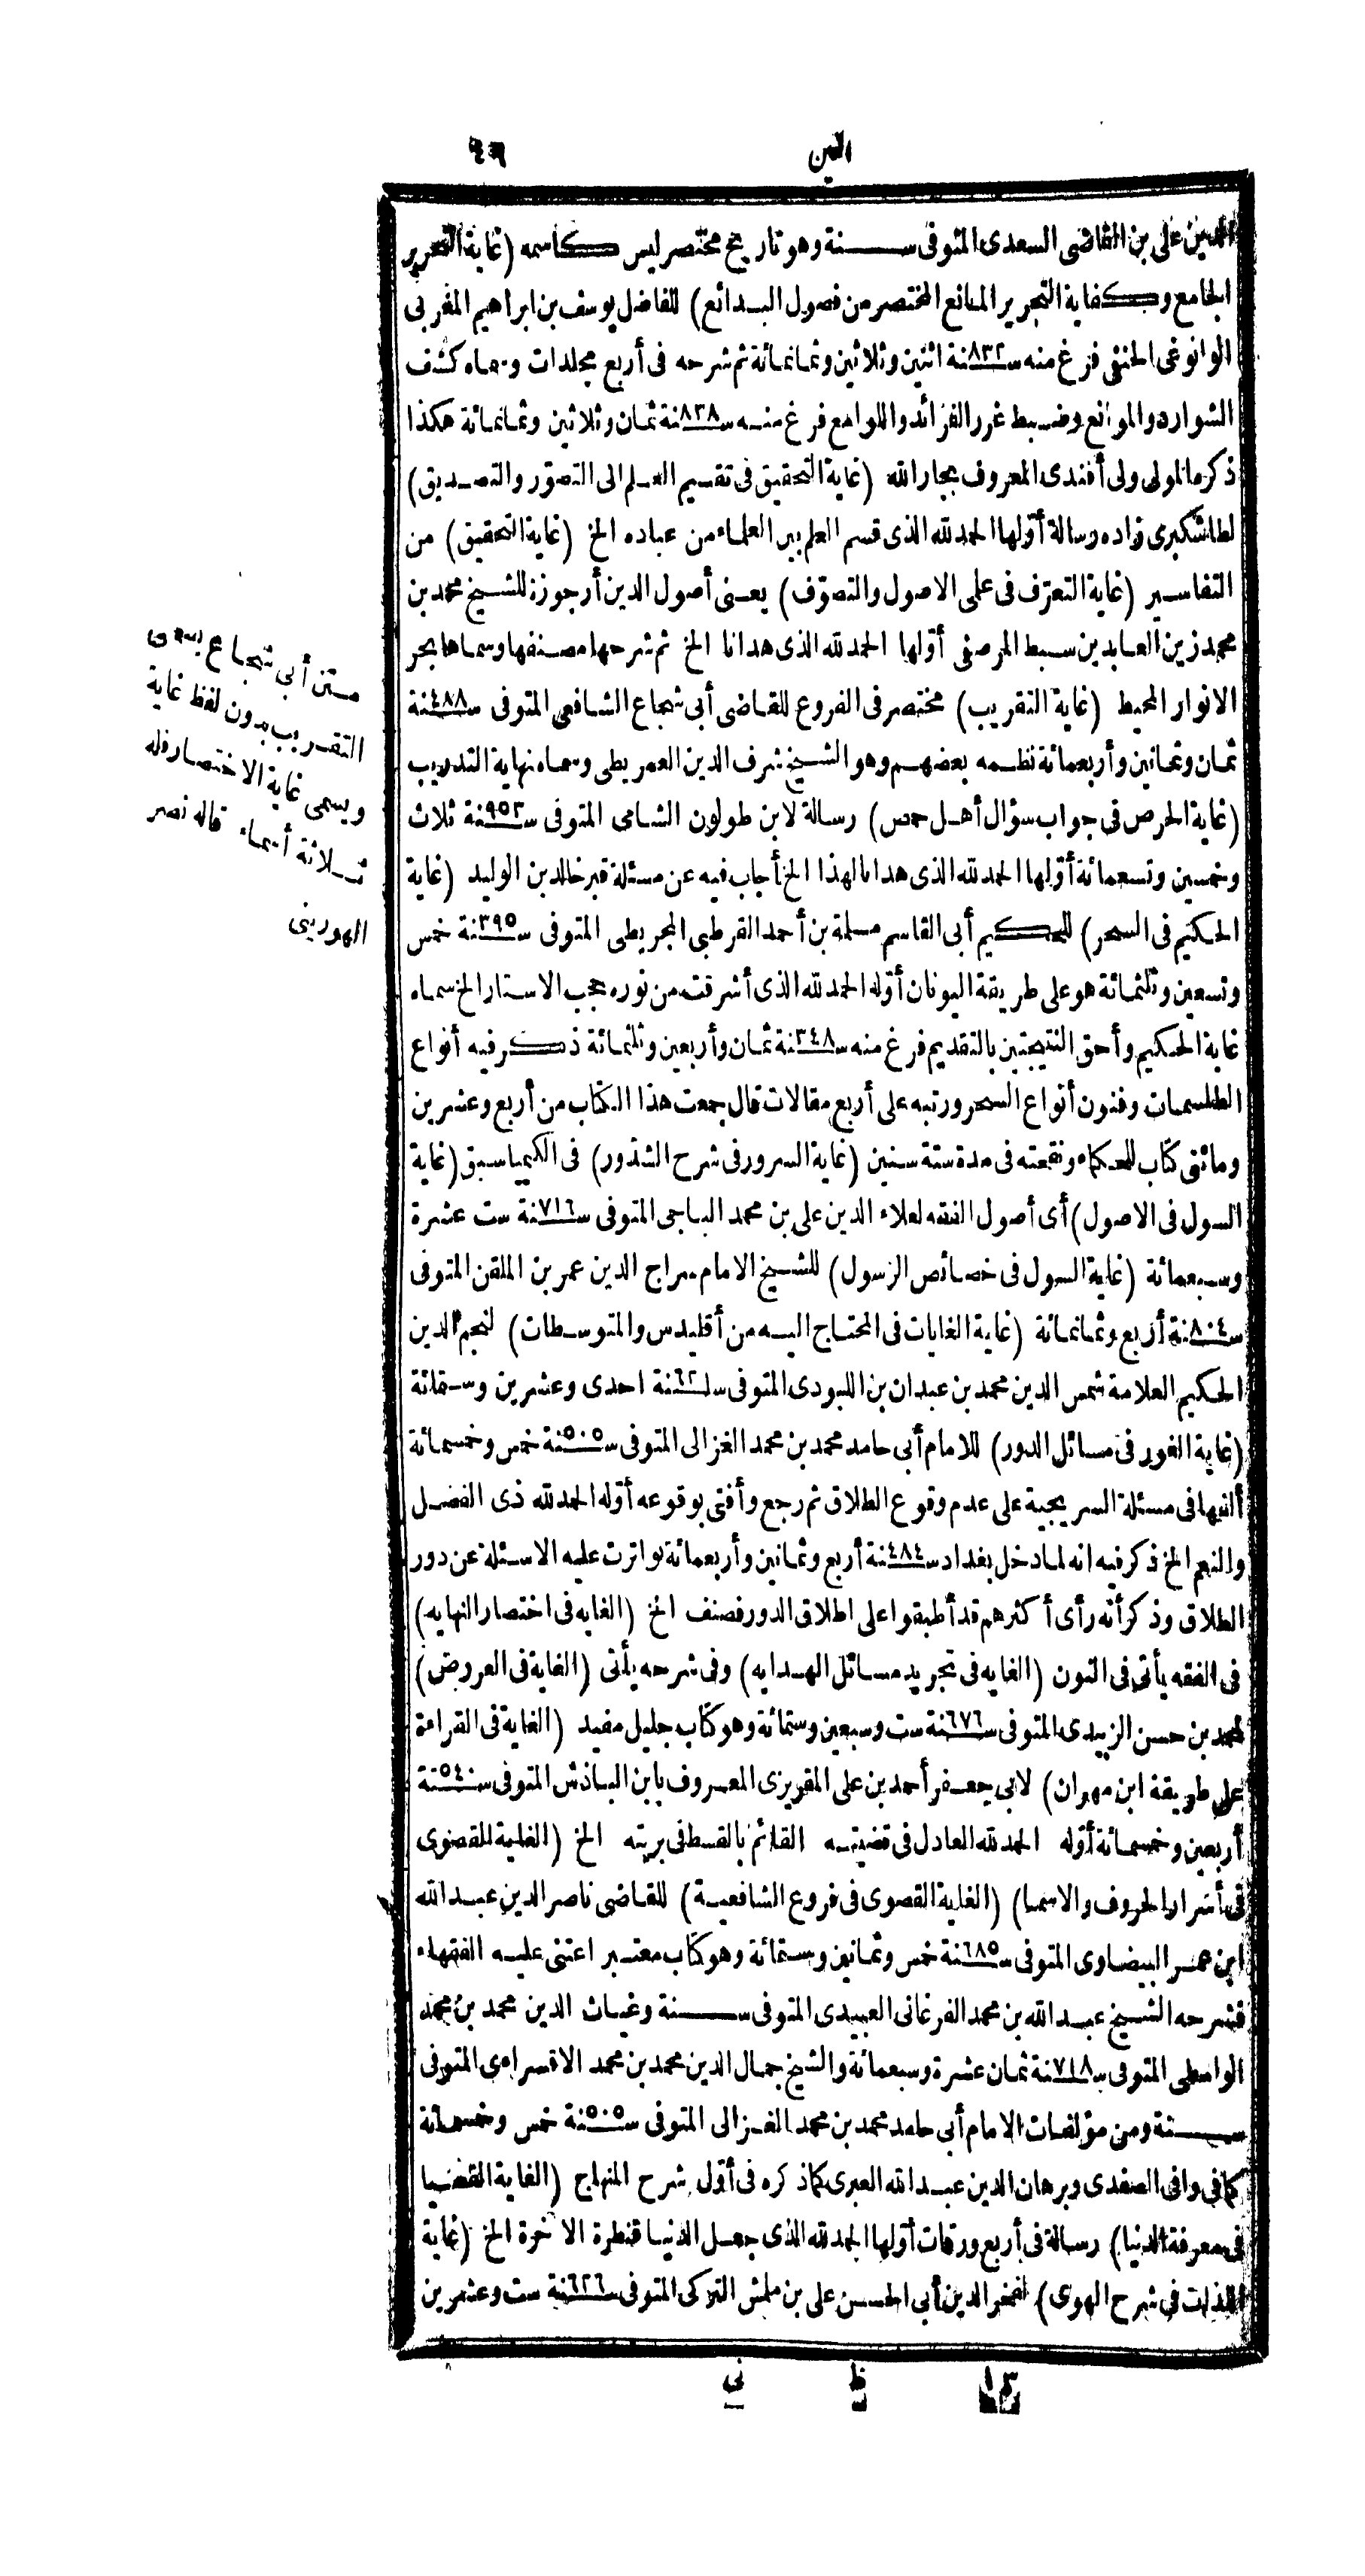 الغين
٤٩
الدين على بن القاضى السعدى المتوفى سـنة وهو تاريخ مختصر ليس كاسمه (غاية التحرير
الجامع وكفاية التجرير المانع المختصر من فصول البدائع) للفاضل يوسف بن ابراهيم المغربى
الوانوغى الحنفى فرغ منه سنة ٨٣٢ اثنين وثلاثين وثمانمائة ثم شرحه فى أربع مجلدات وسماه كشف
الشوارد والموانع وضبط غرر الفرائد واللوامع فرغ منه سنة ٨٣٨ ثمان وثلاثين وثمانمائة هكذا
ذكره المولى ولى أفندى المعروف بجار الله (غاية التحقيق فى تقسيم العلم الى التصوّر والتصديق)
لطاشكبرى زاده رسالة أوّلها الحمد لله الذى قسم العلم بين العلماء من عباده الخ (غاية التحقيق) من
التفاسير (غاية التعرّف فى علمى الاصول والتصوّف) يعنى أصول الدين أرجوزة للشيخ محمد بن
محمد زين العابدين سبط المرصفى أوّلها الحمد لله الذى هدانا الخ ثم شرحها مصنفها وسماها بحر
الانوار المحيط (غاية التقريب) مختصر فى الفروع للقاضى أبى شجاع الشافعى المتوفى سنة ٤٨٨
ثمان وثمانين وأربعمائة نظمه بعضهم وهو الشيخ شرف الدين العمريطى وسماه نهاية التدريب
(غاية الحرص فى جواب سؤال أهل حمص) رسالة لابن طولون الشامى المتوفى سنة ٩٥٣ ثلاث
وخمسين وتسعمائة أوّلها الحمد لله الذى هدانا لهذا الخ أجاب فيه عن مسئلة قبر خالد بن الوليد (غاية
الحكيم فى السحر) للحكيم أبى القاسم مسلمة بن أحمد القرطبى المجريطى المتوفى سنة ٣٩٥ خمس
وتسعين وثلثمائة هو على طريقة اليونان أوّله الحمد لله الذى أشرقت من نوره حجب الاستار الخ سماه
غاية الحكيم وأحق النتيجتين بالتقديم فرغ منه سنة ٣٤٨ ثمان وأربعين وثلثمائة ذكر فيه أنواع
الطلسمات وفنون أنواع السحر ورتبه على أربع مقالات قال جمعت هذا الكتاب من أربع وعشرين
ومائتى كتاب للحكماء ونقحته فى مدة ستة سنين (غاية السرور فى شرح الشذور) فى الكيميا سبق (غاية
السول فى الاصول) أى أصول الفقه لعلاء الدين على بن محمد الباجى المتوفى سنة ٧١٦ ست عشرة
وسبعمائة (غاية السول فى خصائص الرسول) للشيخ الامام سراج الدين عمر بن الملقن المتوفى
سنة ٨٠٤ أربع وثمانمائة (غاية الغايات فى المحتاج اليه من أقليدس والمتوسطات) لنجم الدين
الحكيم العلامة شمس الدين محمد بن عبدان بن اللبودى المتوفى سنة ٦٢١ احدى وعشرين وستمائة
(غاية الغور فى مسائل الدور) للامام أبى حامد محمد بن محمد الغزالى المتوفى سنة ٥٠٥ خمس وخمسمائة
ألفها فى مسئلة السريجية على عدم وقوع الطلاق ثم رجع وأفتى بوقوعه أوّله الحمد لله ذى الفضل
والنعم الخ ذكر فيه انه لما دخل بغداد سنة ٤٨٤ أربع وثمانين وأربعمائة تواترت عليه الاسئلة عن دور
الطلاق وذكر أنه رأى أكثرهم قد أطبقوا على اطلاق الدور فصنف الخ (الغايه فى اختصار النهايه)
فى الفقه يأتى فى النون (الغايه فى تجريد مسائل الهدايه) وفى شرحه يأتى (الغاية فى العروض)
لمحمد بن حسن الزبيدى المتوفى سنة ٦٧٦ ست وسبعين وستمائة وهو كتاب جليل مفيد (الغاية فى القراءة
على طريقة ابن مهران) لابى جعفر أحمد بن على المقريزى المعروف بابن الباذش المتوفى سنة ٥٤٠
أربعين وخمسمائة أوّله الحمد لله العادل فى قضيته القائم بالقسط فى بريته الخ (الغاية القصوى
فى أسرار الحروف والاسما) (الغاية القصوى فى فروع الشافعية) للقاضى ناصر الدين عبد الله
ابن عمر البيضاوى المتوفى سنة ٦٨٥ خمس وثمانين وستمائة وهو كتاب معتبر اعتنى عليه الفقهاء
فشرحه الشيخ عبد الله بن محمد الفرغانى العبيدى المتوفى سـنة وغياث الدين محمد بن محمد
الواسطى المتوفى سنة ٧١٨ ثمان عشرة وسبعمائة والشيخ جمال الدين محمد بن محمد الاقسراءى المتوفى
سـنة ومن مؤلفات الامام أبى حامد محمد بن محمد الغزالى المتوفى سنة ٥٠٥ خمس وخمسمائة
كما فى وافى الصفدى وبرهان الدين عبد الله العبرى كما ذكره فى أوّل شرح المنهاج (الغاية القضيا
فى معرفة الدنيا) رسالة فى أربع ورقات أوّلها الحمد لله الذى جعل الدنيا قنطرة الآخرة الخ (غاية
اللذات فى شرح الهوى) لفخر الدين أبى الحسن على بن ملمش التركى المتوفى سنة ٦٢٦ ست وعشرين
متن أبى شجاع يسمى
التقريب بدون لفظ غاية
ويسمى غاية الاختصار فله
ثلاثة أسماء قاله نصر
الهورينى
١٣ ظ نى